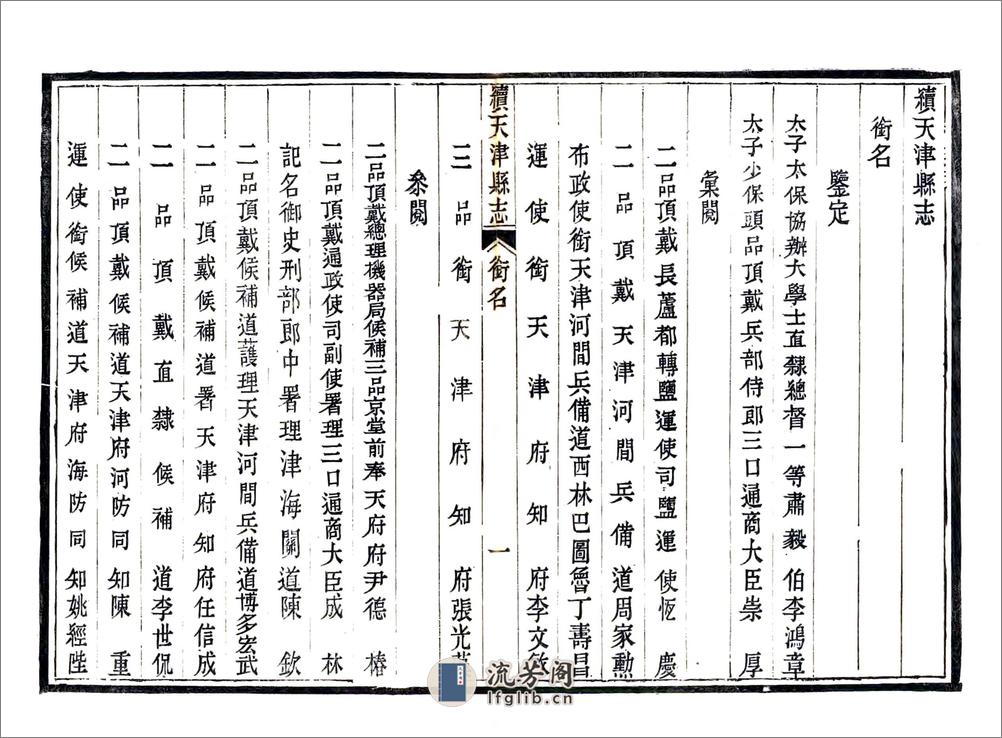 續天津縣志
銜名
鑒定
太子太保協辦大學士直隸總督一等肅毅伯李鴻章
太子少保頭品頂戴兵部侍郎三口通商大臣崇厚
彙閱
二品頂戴長蘆都轉鹽運使司鹽運使恆慶
二品頂戴天津河間兵備道周家勳
布政使銜天津河間兵備道西林巴圖魯丁壽昌
運使銜天津府知府李文
三品銜天津府知府張光
續天津縣志 銜名 一
叅閱
二品頂戴總理機器局候補三品京堂前奉天府府尹德椿
二品頂戴通政使司副使署理三口通商大臣成林
記名御史刑部郎中署理津海關道陳欽
二品頂戴候補道護理天津河間兵備道博多宏武
二品頂戴候補道署天津府知府任信成
二品頂戴直隸候補道李世侃
二品頂戴候補道天津府河防同知陳重
運使銜候補道天津府海防同知姚經陛
流芳阁
lfglib.cn